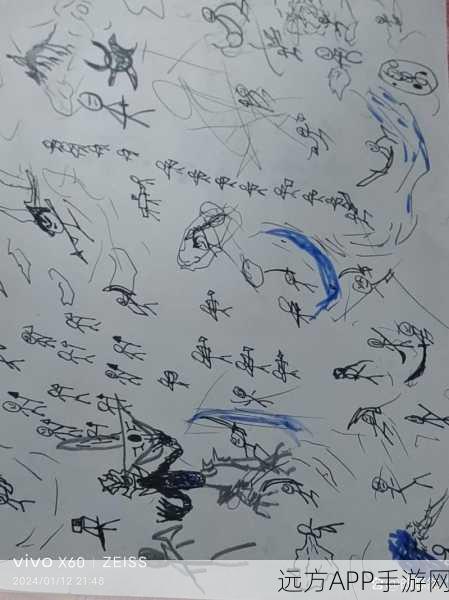 vivo X60 | ZEISS
2024/01/12 21:48
远方APP手游网